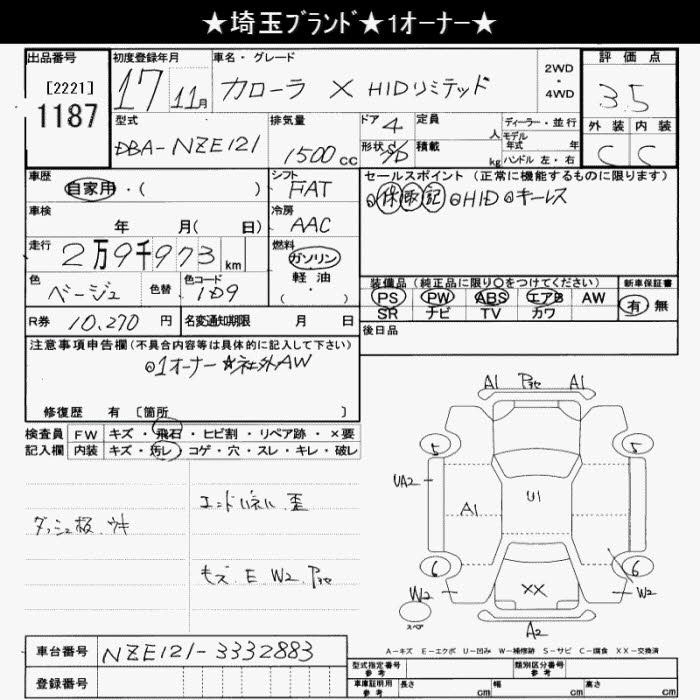 ★埼玉ﾌﾞﾗﾝﾄﾞ★1オーナー★
出品番号
[2221]
1187
初度登録年月
17 11月
車名・グレード
カローラ X HIDリミテッド
2WD
・
4WD
評価点
3.5
外装 内装
C C
型式
DBA-NZE121
排気量
1500cc
ドア 4
形状 S/D
定員 人
積載 kg
ディーラー・並行
モデル年式 年
ハンドル 左・右
車歴
自家用・( )
シフト
FAT
車検
年 月( 日)
冷房
AAC
走行
2万9千973km
燃料
ガソリン
軽油
・
( )
色
ベージュ
色替
色コード
1D9
R券 10,270円
名変通知期限 月 日
セールスポイント(正常に機能するものに限ります)
◎休 取 記 ◎HID ◎キーレス
装備品(純正品に限り○をつけてください)
PS PW ABS エアB AW
SR ナビ TV カワ
新車保証書
有 無
後日品
注意事項申告欄(不具合内容等は具体的に記入して下さい)
◎1オーナー ☆社外AW
修復歴 有 [箇所 ]
検査員 FW キズ・飛石・ヒビ割・リペア跡・×要
記入欄 内装 キズ・汚レ・コゲ・穴・スレ・キレ・破レ
エンドパネル 歪
ダッシュ板 ウキ
キズ E W2
A1 A1
5 5
UA2
A1
U1
6 6
W2 W2
XX
スペア
A2
A-キズ E-エクボ U-凹み W-補修跡 S-サビ C-腐食 XX-交換済
車台番号 NZE121-3332883
登録番号
型式指定番号
参考
類別区分番号
参考
車庫証明用
参考
長さ cm 幅 cm 高さ cm